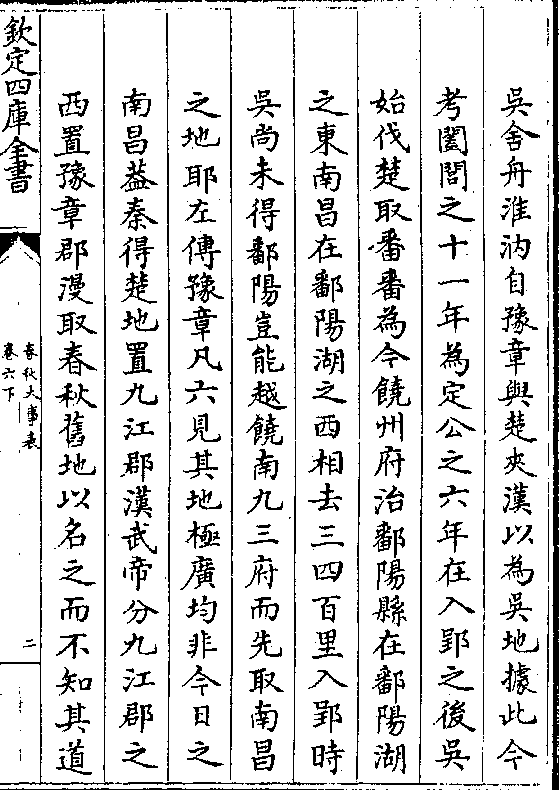 吳舍舟淮汭自豫章與楚夾漢以為吳地據此今
考闔閭之十一年為定公之六年在入郢之後吳
始伐楚取番番為今饒州府治鄱陽縣在鄱陽湖
之東南昌在鄱陽湖之西相去三四百里入郢時
吳尚未得鄱陽豈能越饒南九三府而先取南昌
之地耶左傳豫章凡六見其地極廣均非今日之
南昌葢秦得楚地置九江郡漢武帝分九江郡之
西置豫章郡漫取春秋舊地以名之而不知其道
欽定四庫全書
春秋大事表
卷六下
二